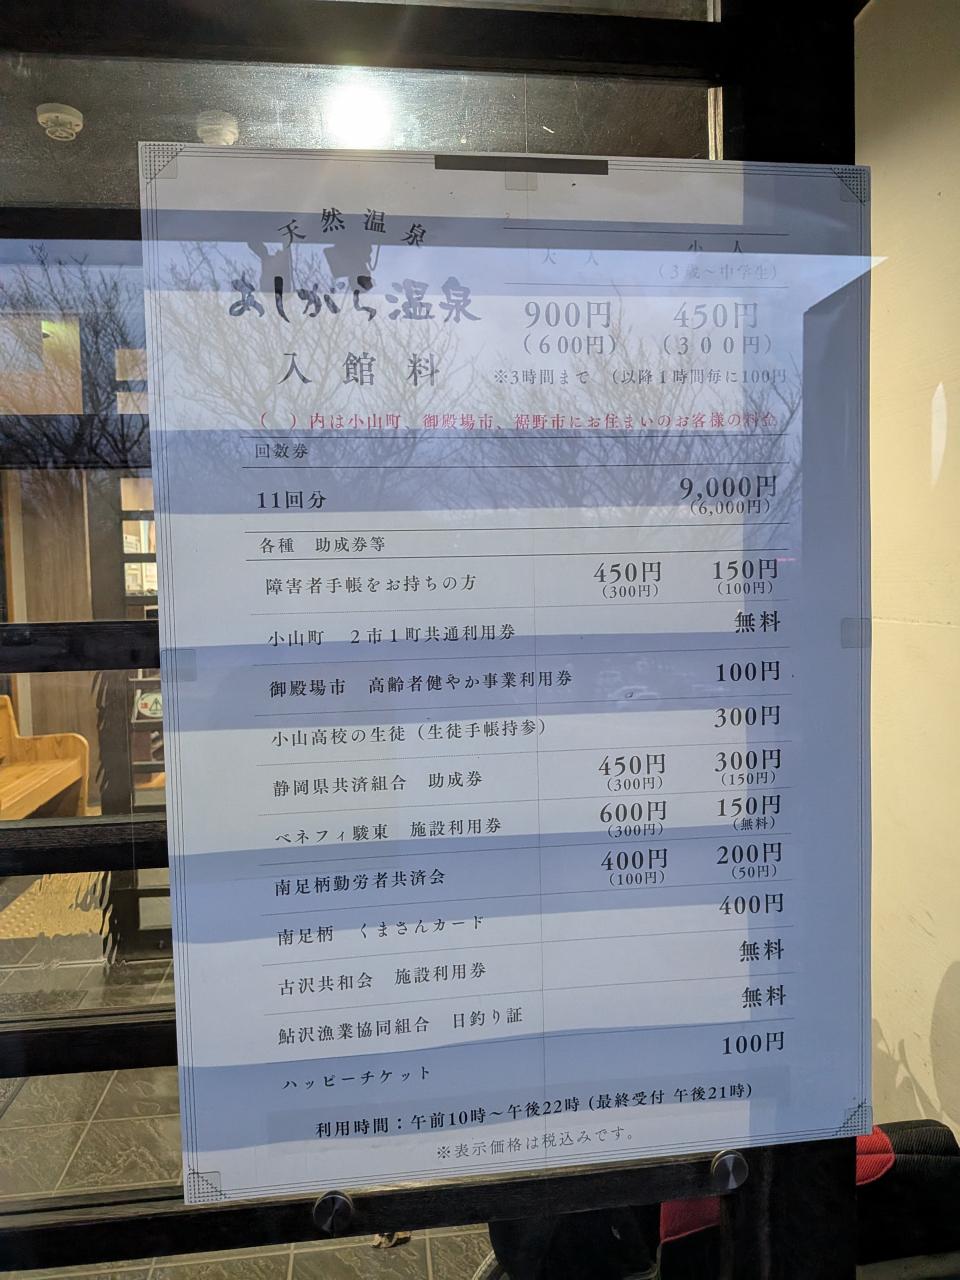 天然温泉
あしがら温泉
入館料
大人 小人
(3歳～中学生)
900円 450円
(600円) (300円)
※3時間まで (以降1時間毎に100円
( )内は小山町、御殿場市、裾野市にお住まいのお客様の料金
回数券
11回分 9,000円
(6,000円)
各種 助成券等
障害者手帳をお持ちの方 450円 150円
(300円) (100円)
小山町 2市1町共通利用券 無料
御殿場市 高齢者健やか事業利用券 100円
小山高校の生徒(生徒手帳持参) 300円
静岡県共済組合 助成券 450円 300円
(300円) (150円)
ベネフィ駿東 施設利用券 600円 150円
(300円) (無料)
南足柄勤労者共済会 400円 200円
(100円) (50円)
南足柄 くまさんカード 400円
古沢共和会 施設利用券 無料
鮎沢漁業協同組合 日釣り証 無料
ハッピーチケット 100円
利用時間：午前10時～午後22時 (最終受付 午後21時)
※表示価格は税込みです。